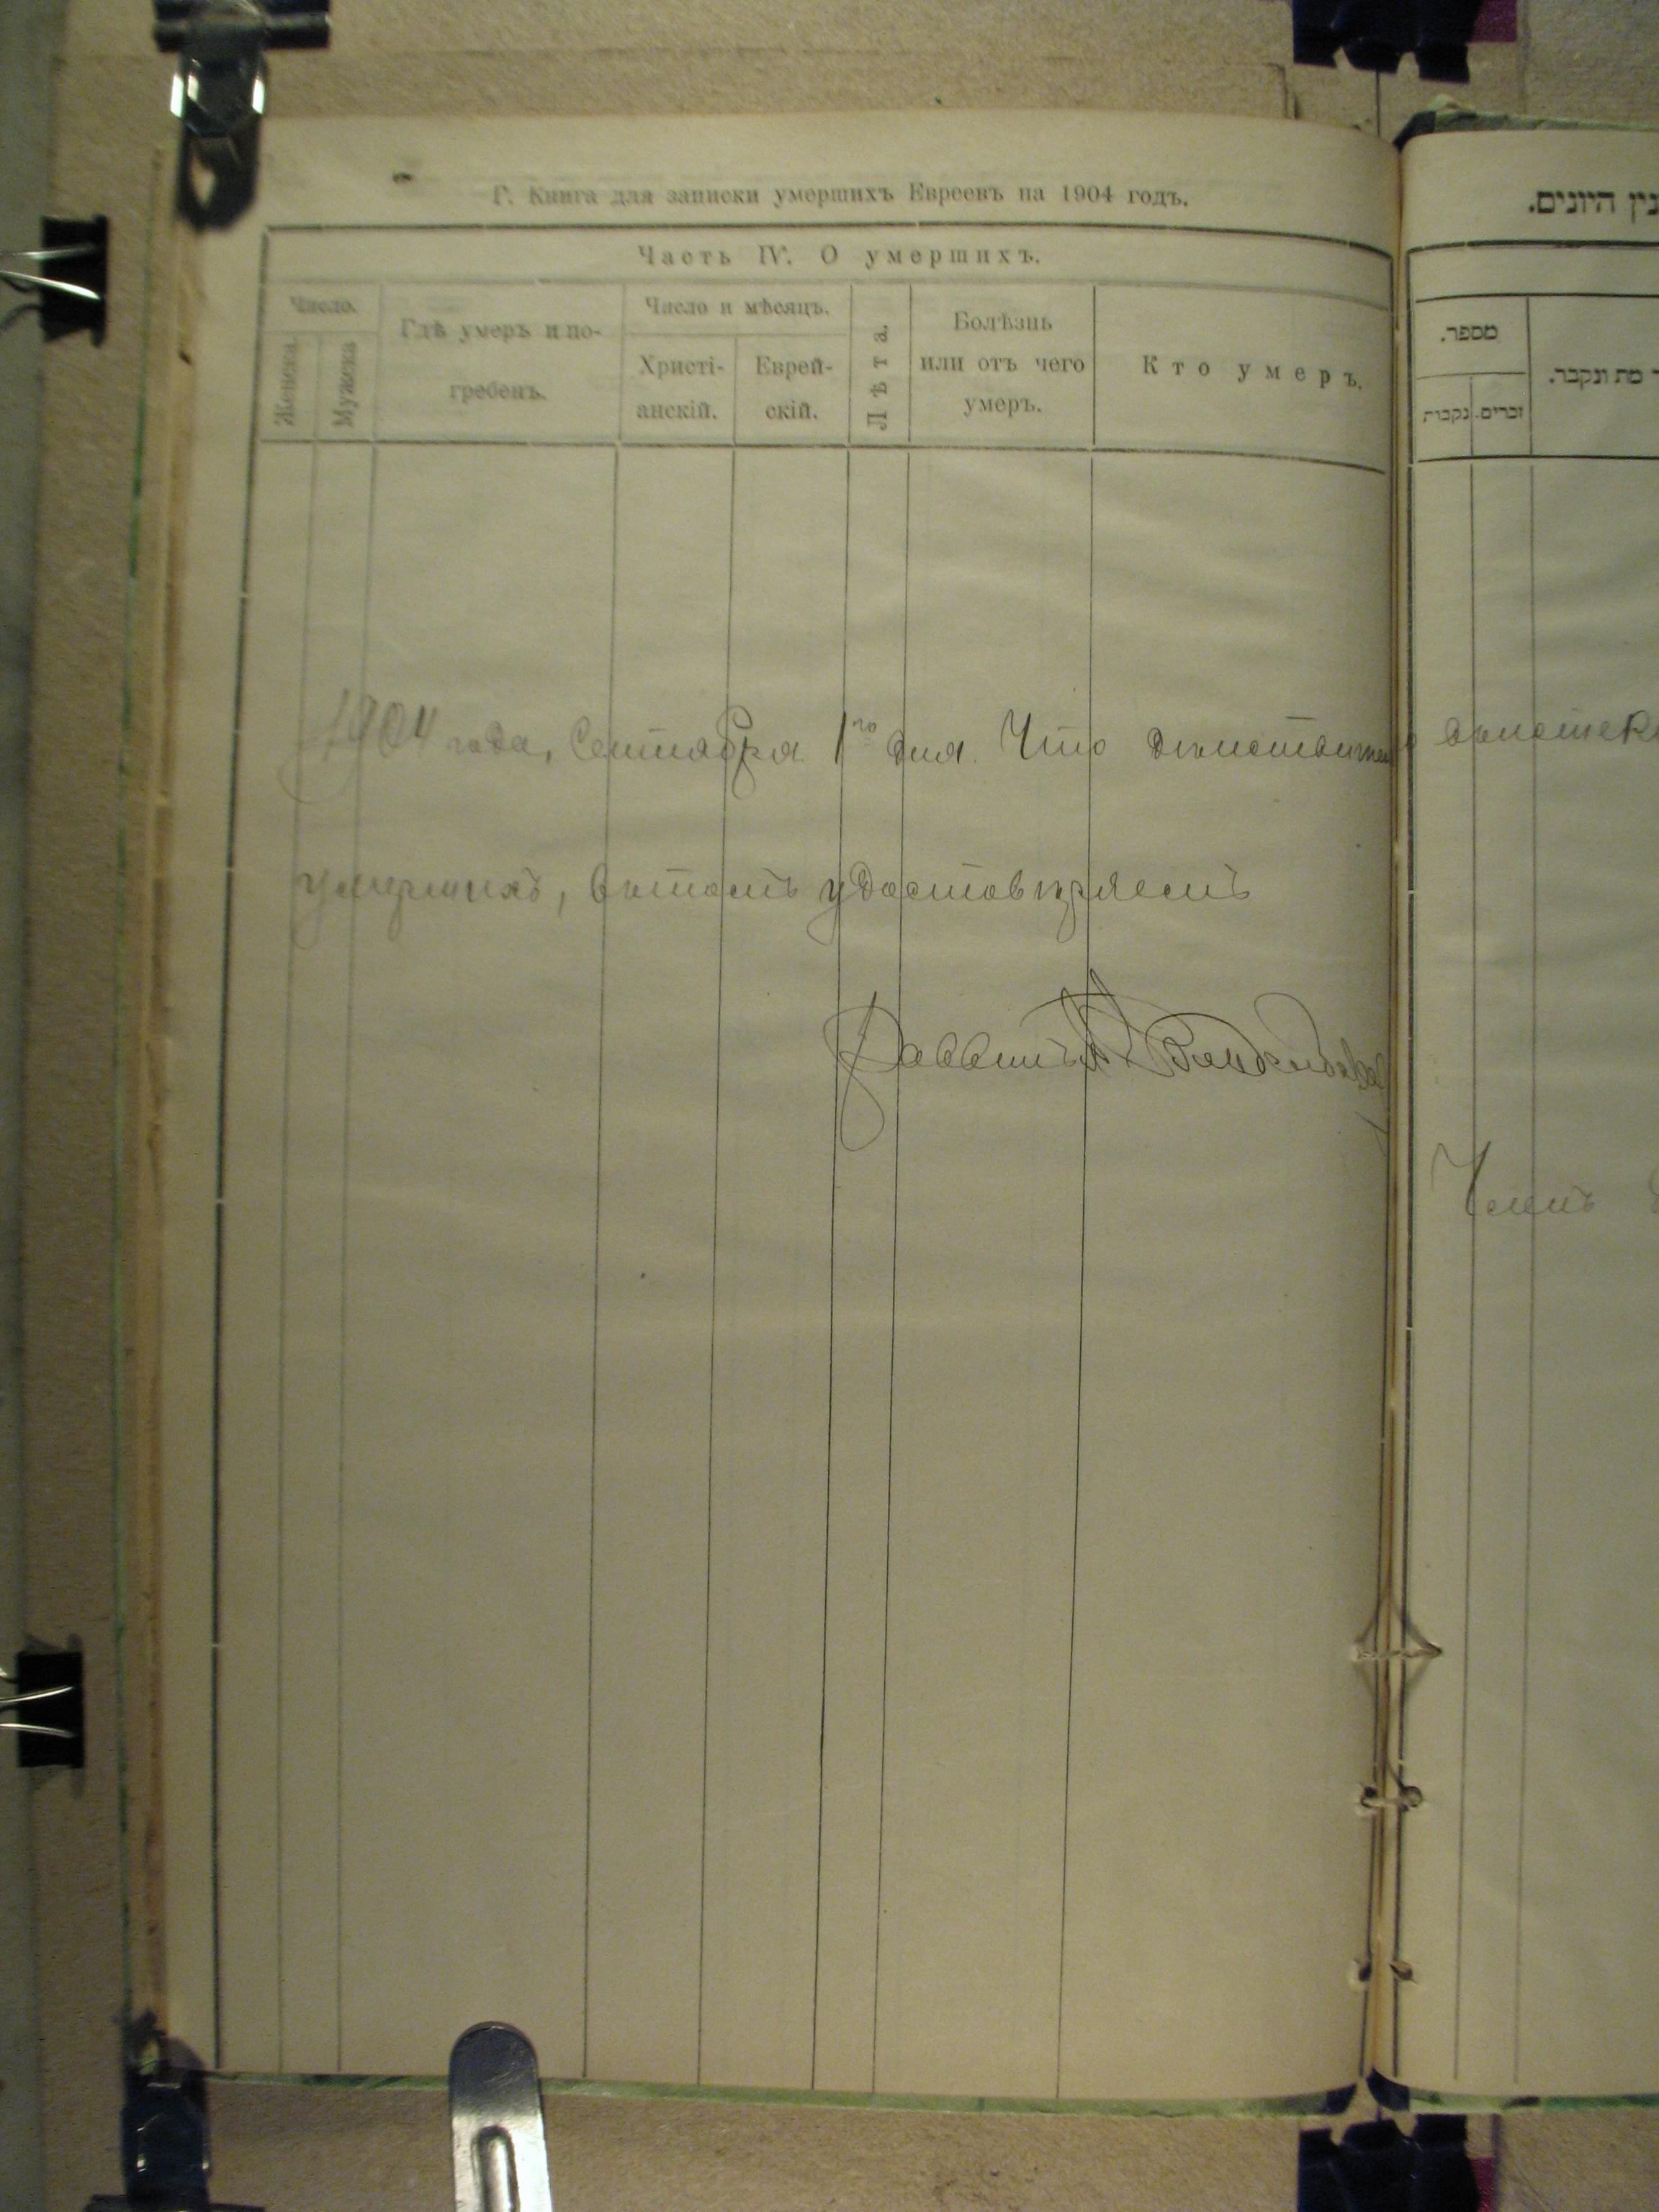 Г. Книга для записки умершихъ Евреевъ на 1904 годъ.
Часть IV. О умершихъ.
Число.
Женска.
Мужска
Гдѣ умеръ и по-
гребенъ.
Число и мѣсяцъ.
Христі-
анскій.
Еврей-
скій.
Лѣта.
Болѣзнь
или отъ чего
умеръ.
Кто умеръ.
1904 года, Сентября 1го дня. Что дѣйствительно
умершихъ, въ томъ удостовѣряемъ
Раввинъ
нין היונים.
מספר.
זכרים.
נקבות
מת ונקבר.
Членъ